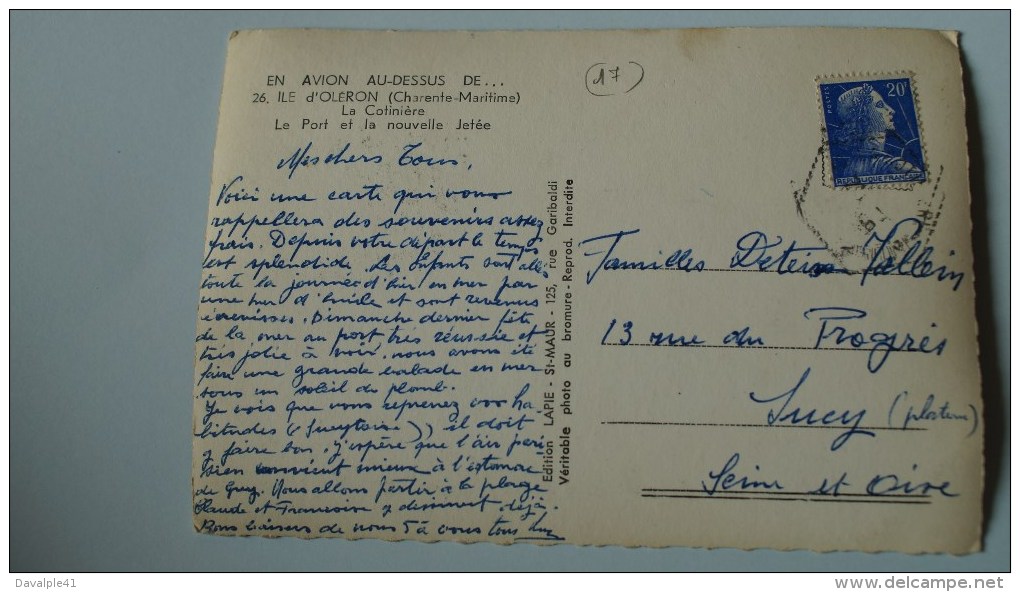 EN AVION AU-DESSUS DE...
26. ILE d'OLÉRON (Charente-Maritime)
La Cotinière
Le Port et la nouvelle Jetée
17
POSTES
20F
REPUBLIQUE FRANÇAISE
Mes chers Tous,
Voici une carte qui vous
rappellera des souvenirs assez
frais. Depuis votre départ le temps
est splendide. Les Enfants sont allés
toute la journée d'hier en mer par
une mer d'huile et sont revenus
écrevisses. Dimanche dernier fête
de la mer au port très réussie et
très jolie à voir. nous avons été
faire une grande balade en mer
sous un soleil du plomb.
Je vois que vous reprenez vos ha-
bitudes (Sucytoise), il doit
y faire bon. J'espère que l'air pari-
sien convient mieux à l'estomac
de Guy. Nous allons partir à la plage
Claude et Francoise y dessinent déjà.
Bons baisers de nous 5 à vous tous Luc
Edition LAPIE - St-MAUR - 125, rue Garibaldi
Véritable photo au bromure - Reprod. Interdite
Familles
13 rue du Progrès
Sucy
Seine et Oise
Davalple41
www.delcampe.net